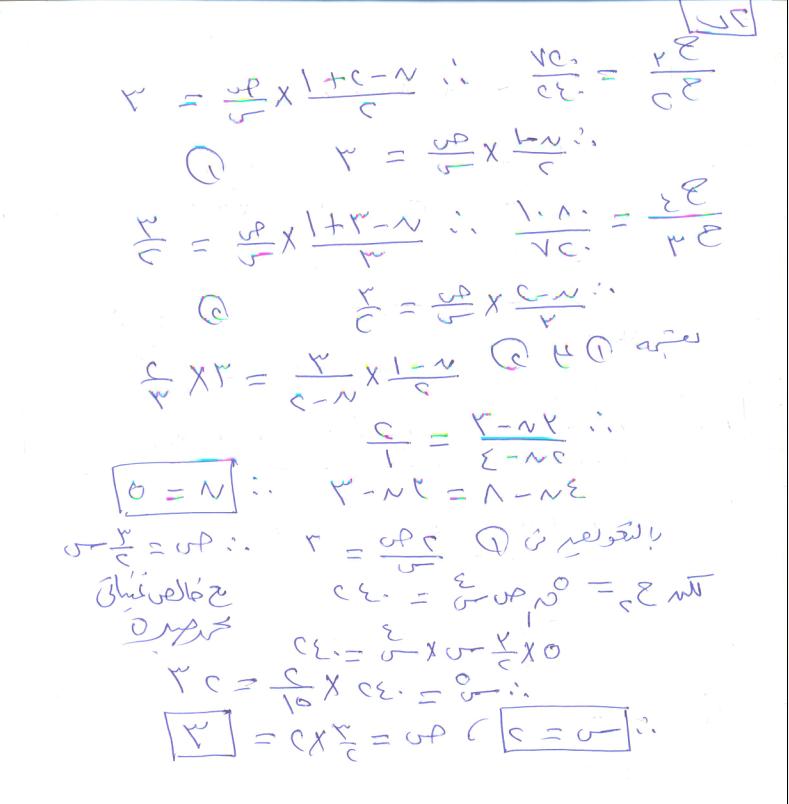 حـ٣/حـ٢ = ٧٢٠/٢٤٠ ∴ (ن-٢+١)/٢ × ص/س = ٣
∴ (ن-١)/٢ × ص/س = ٣ ①
حـ٤/حـ٣ = ١٠٨٠/٧٢٠ ∴ (ن-٣+١)/٣ × ص/س = ٣/٢
∴ (ن-٢)/٣ × ص/س = ٣/٢ ②
بقسمة ① ، ②
(ن-١)/٢ × ٣/(ن-٢) = ٣ × ٢/٣
∴ (٣ن-٣)/(٢ن-٤) = ٢/١
٤ن-٨ = ٣ن-٣ ∴ ن = ٥
بالتعويض فى ① ٢ص/س = ٣ ∴ ص = ٣/٢ س
لكن حـ٢ = ٥ق١ ص س٤ = ٢٤٠
مع خالص تحياتى
٥ × ٣/٢ س × س٤ = ٢٤٠
∴ س٥ = ٢٤٠ × ٢/١٥ = ٣٢
∴ س = ٢ ، ص = ٣/٢ × ٢ = ٣